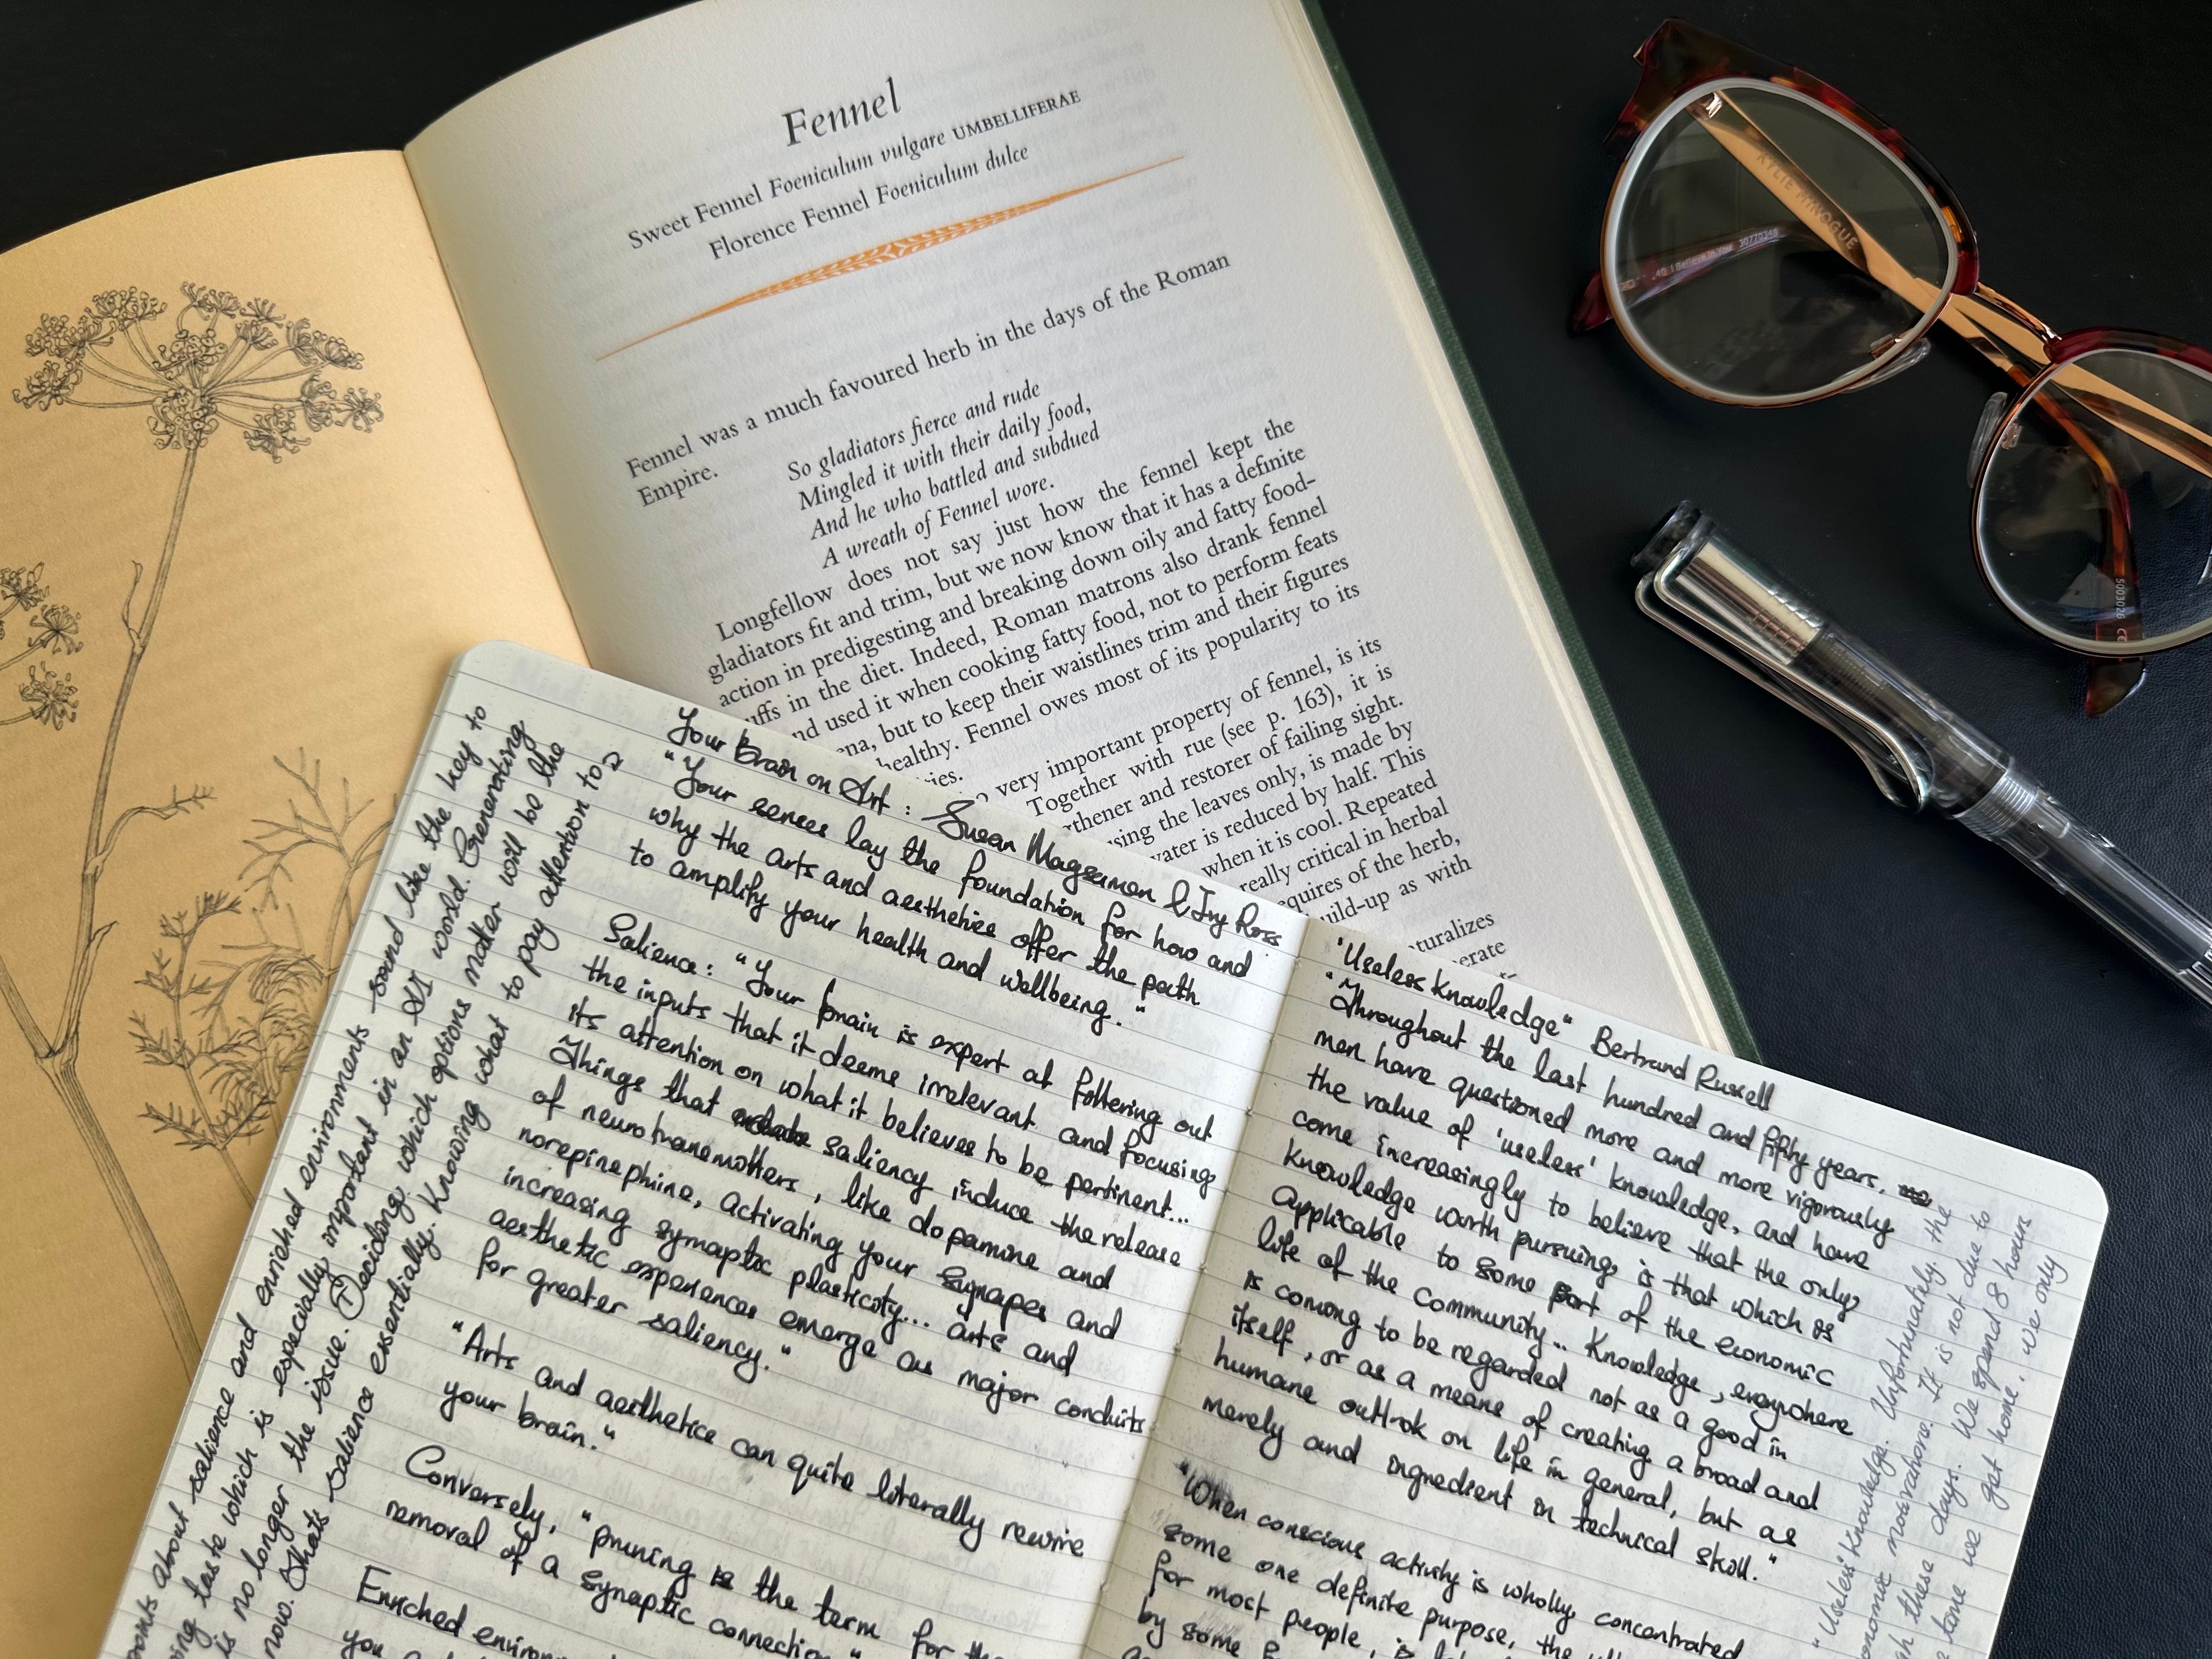 Fennel
Sweet Fennel Foeniculum vulgare UMBELLIFERAE
Florence Fennel Foeniculum dulce
Fennel was a much favoured herb in the days of the Roman
Empire.
So gladiators fierce and rude
Mingled it with their daily food,
And he who battled and subdued
A wreath of Fennel wore.
Longfellow does not say just how the fennel kept the
gladiators fit and trim, but we now know that it has a definite
action in predigesting and breaking down oily and fatty food-
uffs in the diet. Indeed, Roman matrons also drank fennel
nd used it when cooking fatty food, not to perform feats
ena, but to keep their waistlines trim and their figures
healthy. Fennel owes most of its popularity to its
ies.
very important property of fennel, is its
Together with rue (see p. 163), it is
thener and restorer of failing sight.
sing the leaves only, is made by
vater is reduced by half. This
when it is cool. Repeated
really critical in herbal
equires of the herb,
uild-up as with
turalizes
erate
KYLIE MINOGUE
I Believe In You 30770348
Your brain on Art: Susan Magsamen & Ivy Ross
"Your senses lay the foundation for how and
why the arts and aesthetics offer the path
to amplify your health and wellbeing."
Salience: "Your brain is expert at filtering out
the inputs that it deems irrelevant and focusing
its attention on what it believes to be pertinent...
Things that saliency induce the release
of neurotransmitters, like dopamine and
norepinephrine, activating your synapes and
increasing symaptic plasticity... arts and
aesthetic experiences emerge as major conduits
for greater saliency."
"Arts and aesthetics can quite literally rewire
your brain."
Conversely, "pruning is the term for the
removal of a synaptic connection"
Enriched environ
you
points about salience and enriched environments sound like the key to
ping taste which is especially important in an AI world. Generating
is no longer the issue. Deciding which options matter will be the
now. Thats salience essentially. Knowing what to pay attention to
'Useless Knowledge" Bertrand Russell
"Throughout the last hundred and fifty years,
men have questioned more and more vigorously
the value of 'useless' knowledge, and have
come increasingly to believe that the only
knowledge worth pursuing is that which is
applicable to some part of the economic
life of the community... Knowledge, everywhere
is coming to be regarded not as a good in
itself, or as a means of creating a broad and
humane outlook on life in general, but as
merely and ingredient in technical skill."
"When conscious activity is wholly concentrated
some one definite purpose, the
for most people, is
by some
"Useless" Knowledge. Unfortunately the
onomic It is not due to
these days. We spend 8 hours
time we get home. We only